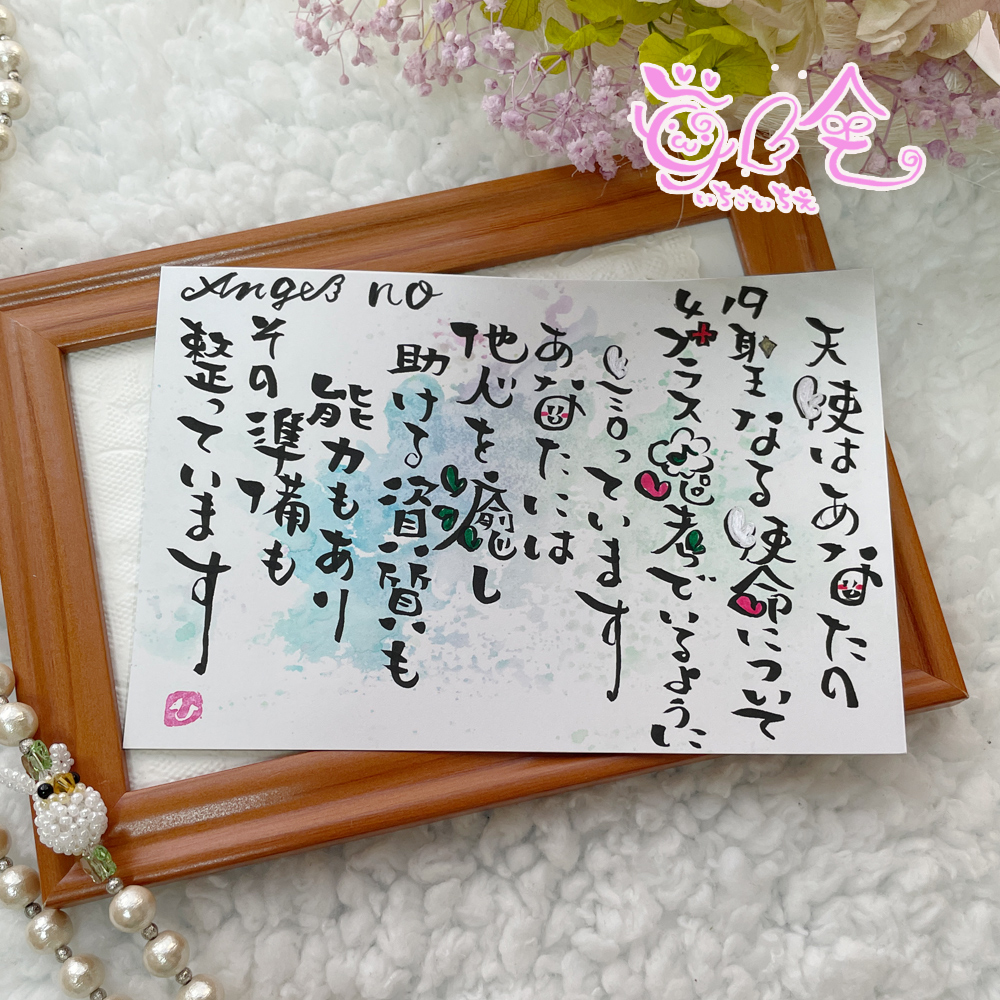 いちごいちえ
Angel no 419
天使はあなたの
聖なる使命について
プラス思考でいるように
言っています
あなたには
他人を癒し
助ける資質も
能力もあり
その準備も
整っています